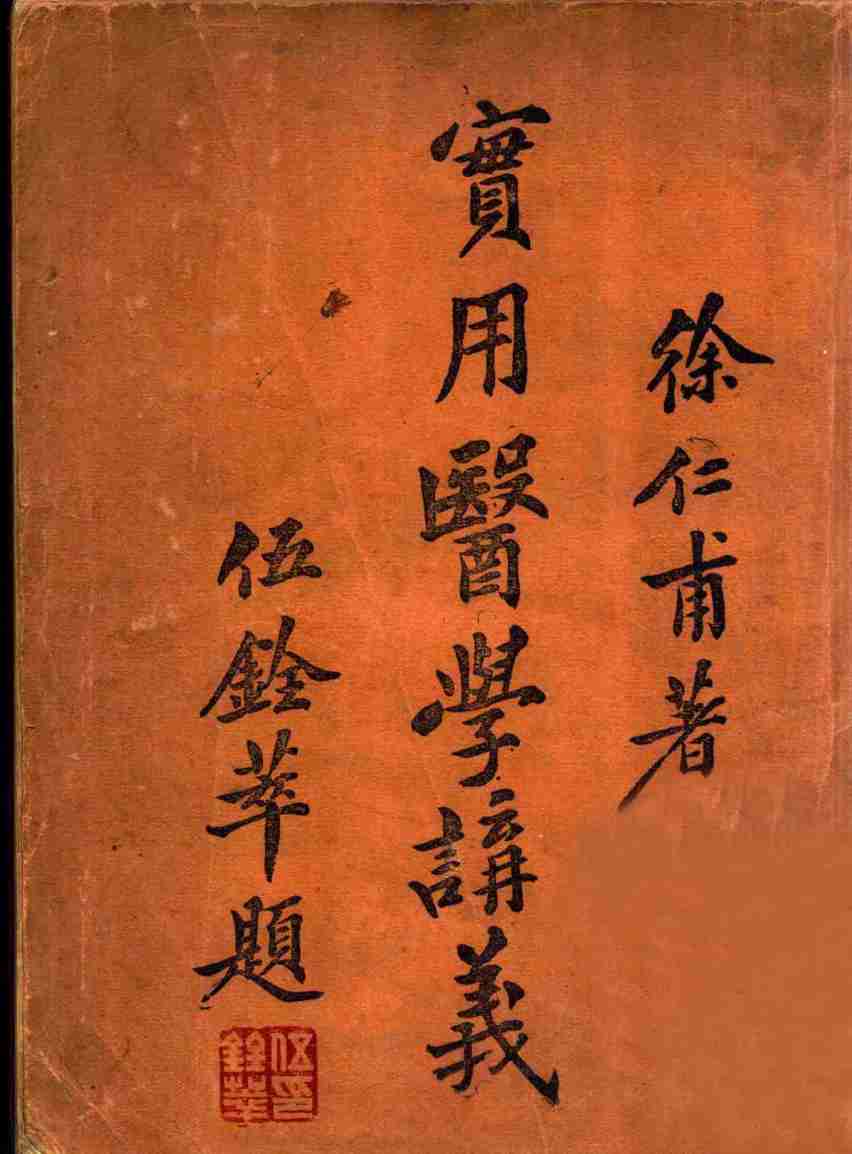 徐仁甫著
實用醫學講義
伍銓萃題
伍印
銓萃